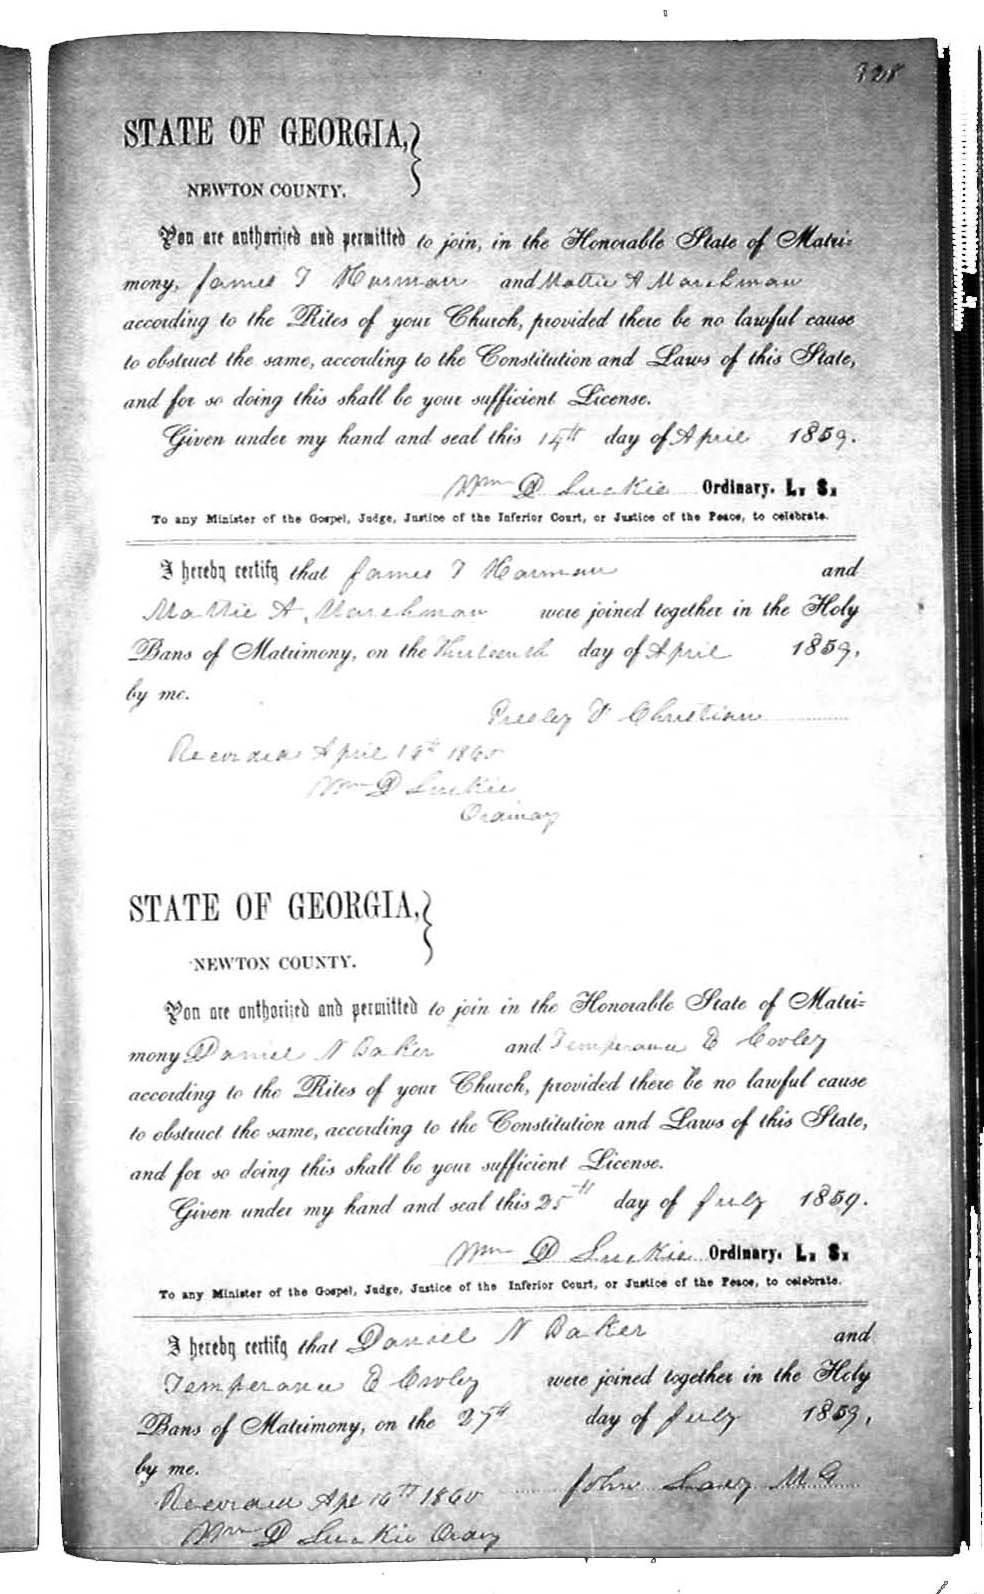 328
STATE OF GEORGIA,
NEWTON COUNTY.
You are authorized and permitted to join, in the Honorable State of Matri=
mony, James T Harman and Mattie A Marchman
according to the Rites of your Church, provided there be no lawful cause
to obstruct the same, according to the Constitution and Laws of this State,
and for so doing this shall be your sufficient License.
Given under my hand and seal this 14th day of April 1859.
Wm D Luckie Ordinary. L. S.
To any Minister of the Gospel, Judge, Justice of the Inferior Court, or Justice of the Peace, to celebrate.
I hereby certify that James T Harman and
Mattie A, Marchman were joined together in the Holy
Bans of Matrimony, on the Thirteenth day of April 1859,
by me.
Presley Christian
Recorded April 1860
Wm D Luckie
Ordinary
STATE OF GEORGIA,
NEWTON COUNTY.
You are authorized and permitted to join in the Honorable State of Matri=
mony Daniel N Baker and Temperance E Cooley
according to the Rites of your Church, provided there be no lawful cause
to obstruct the same, according to the Constitution and Laws of this State,
and for so doing this shall be your sufficient License.
Given under my hand and seal this 25th day of July 1859.
Wm D Luckie Ordinary. L. S.
To any Minister of the Gospel, Judge, Justice of the Inferior Court, or Justice of the Peace, to celebrate.
I hereby certify that Daniel N Baker and
Temperance E Cooley were joined together in the Holy
Bans of Matrimony, on the 27th day of July 1859,
by me.
John Lacy M G
Recorded Apl 16th 1860
Wm D Luckie Ordny